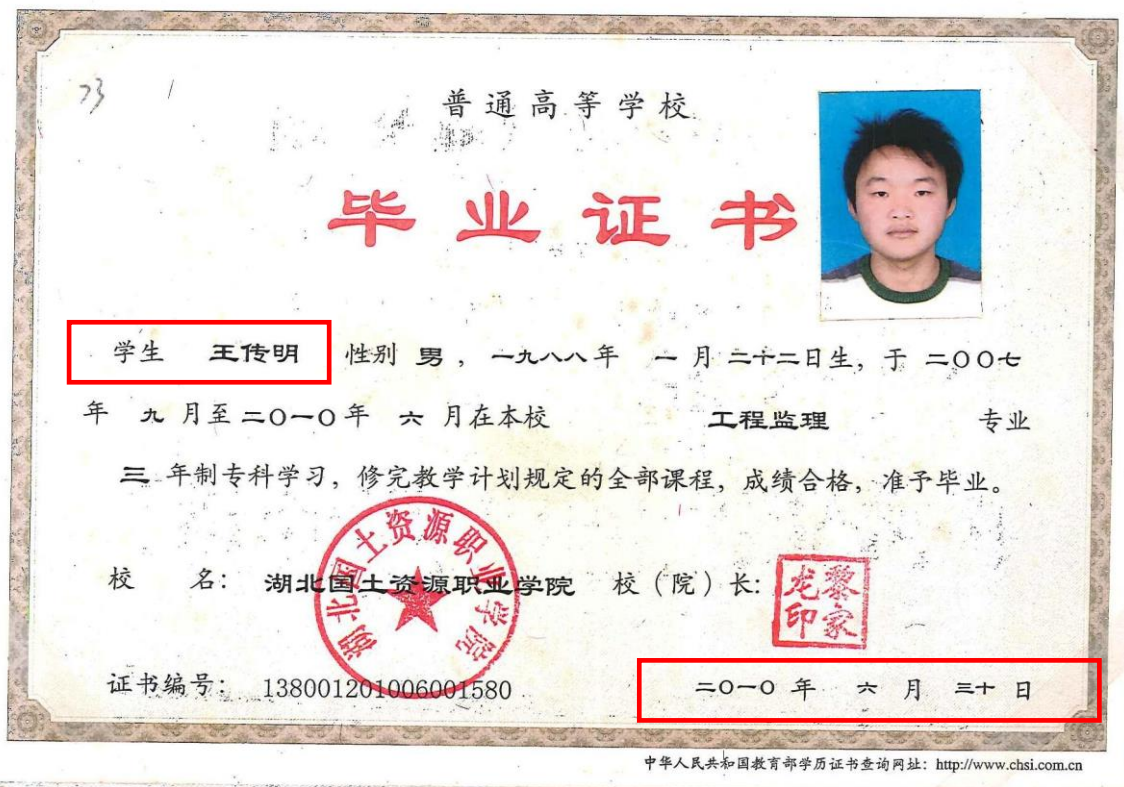 23
普通高等学校
毕业证书
学生 王传明 性别 男，一九八八年 一月二十二日生，于二〇〇七
年 九 月至二〇一〇年 六 月在本校 工程监理 专业
三 年制专科学习，修完教学计划规定的全部课程，成绩合格，准予毕业。
湖北国土资源职业学院
校 名： 湖北国土资源职业学院 校（院）长：
黎家龙印
证书编号： 138001201006001580 二〇一〇 年 六 月 三十 日
中华人民共和国教育部学历证书查询网址：http://www.chsi.com.cn